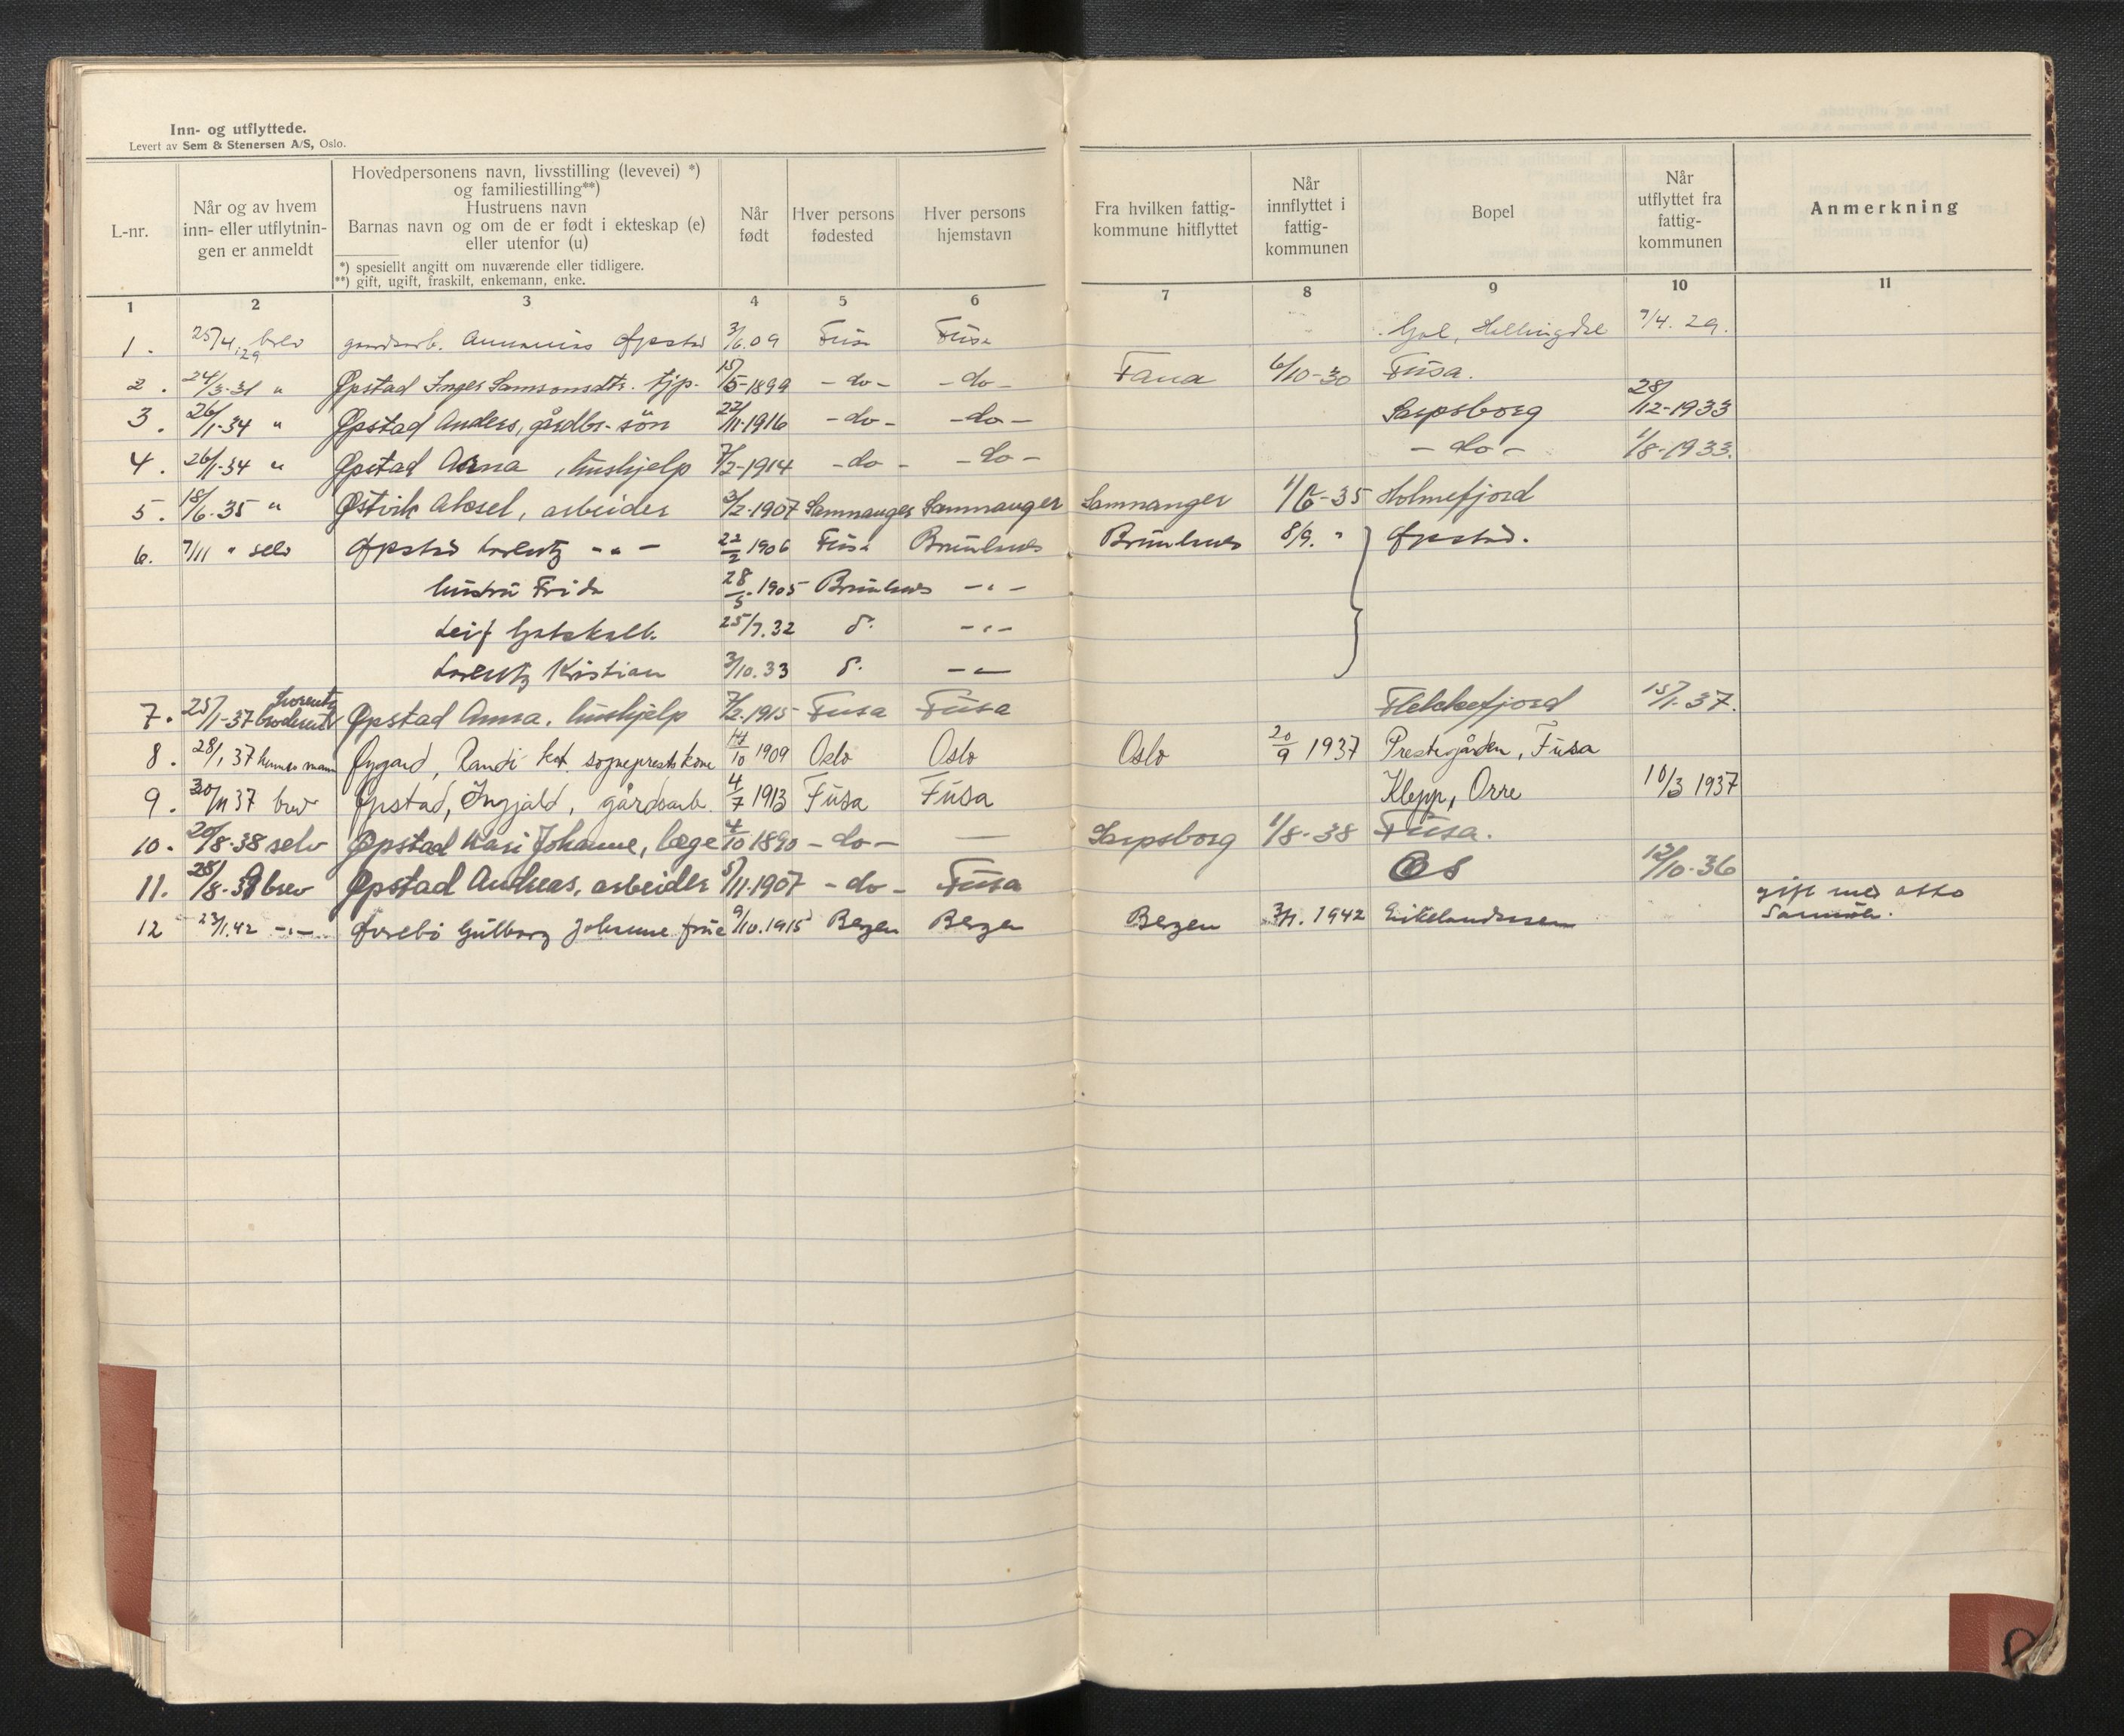 Inn- og utflyttede.
Levert av Sem & Stenersen A/S, Oslo.
L-nr.
Når og av hvem
inn- eller utflytnin-
gen er anmeldt
Hovedpersonens navn, livsstilling (levevei) *)
og familiestilling**)
Hustruens navn
Barnas navn og om de er født i ekteskap (e)
eller utenfor (u)
*) spesiellt angitt om nuværende eller tidligere.
**) gift, ugift, fraskilt, enkemann, enke.
Når
født
Hver persons
fødested
Hver persons
hjemstavn
Fra hvilken fattig-
kommune hitflyttet
Når
innflyttet i
fattig-
kommunen
Bopel
Når
utflyttet fra
fattig-
kommunen
Anmerkning
1 2 3 4 5 6 7 8 9 10 11
1. 25/4.29 brev gardsarb. Øpstad 3/6.09 Fusa Fusa Gol, Hallingdal 9/4. 29.
2. 24/3-31 " Øpstad Inger Samsonsdtr. tjp. 15/5-1899 -do- -do- Fana 6/10-30 Fusa.
3. 26/1-34 " Øpstad Anders, gårdbr.-sön 22/11-1916 -do- -do- Sarpsborg 28/12-1933
4. 26/1-34 " Øpstad Anna, hushjelp 7/2-1914 -do- -do- -do- 1/8-1933.
5. 18/6-35 " Østvik Aksel, arbeider 3/2-1907 Samnanger Samnanger Samnanger 1/6-35 Holmefjord
6. 7/11 " selv Øpstad Lorentz - " - 22/2 1906 Fusa Bremnes Bremnes 8/9. " Øpstad.
hustru Frida 28/5.1905 Bremnes - " -
Leif Gotskalk 25/7.32 d. - " -
Lorentz Kristian 3/10.33 d. - " -
7. 25/1-37 Lorentz Øpstad Anna, hushjelp 7/2-1915 Fusa Fusa Flekkefjord 15/1-37.
8. 28/1 37 hennes mann Øygard, Randi sogneprests kone 14/10 1909 Oslo Oslo Oslo 20/9 1937 Prestegården, Fusa
9. 30/11 37 brev Øpstad, Ingjald, gårdsarb. 4/7 1913 Fusa Fusa Klepp, Orre 10/3 1937
10. 20/8-38 selv Øpstad Kari Johanne, læge 4/10 1890 -do- — Sarpsborg 1/8-38 Fusa.
11. 28/8-39 brev Øpstad Andreas, arbeider 8/11-1907 -do- Fusa Os 12/10-36
12 23/1.42 -"- Øvrebö Gulborg Johanne frue 9/10.1915 Bergen Bergen Bergen 3/1. 1942 Eikelandsosen gift med Otto